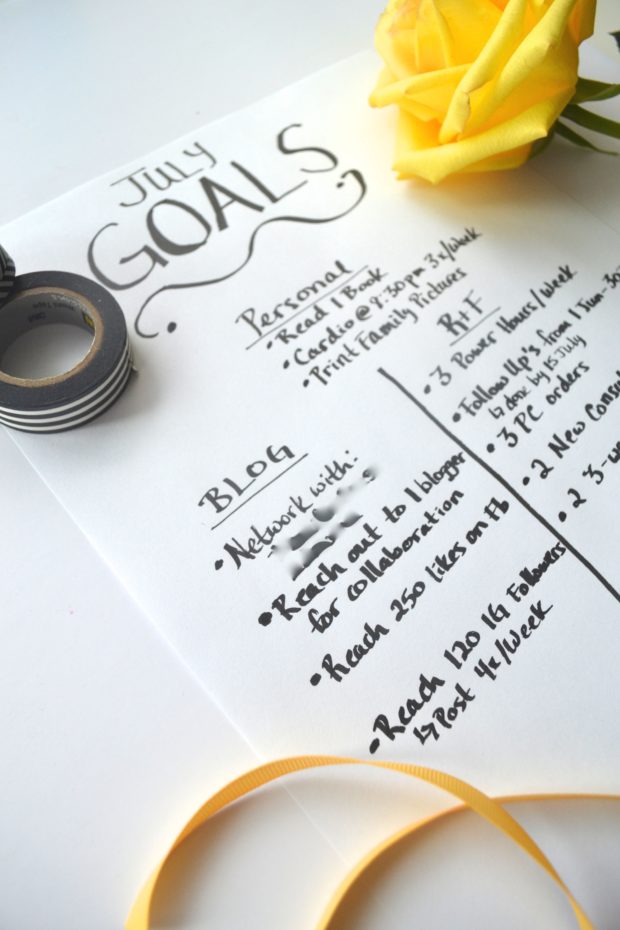 JULY
GOALS
Personal
• Read 1 Book
• Cardio @ 9:30pm 3x/Week
• Print Family Pictures
BLOG
• Network with:
• Reach out to 1 blogger
for collaboration
• Reach 250 likes on Fb
• Reach 120 IG Followers
↳ Post 4x/Week
R+F
• 3 Power Hours/Week
• Follow Up's from 1 Jun-30
↳ done by 15 July
• 3 PC orders
• 2 New
• 2 3-